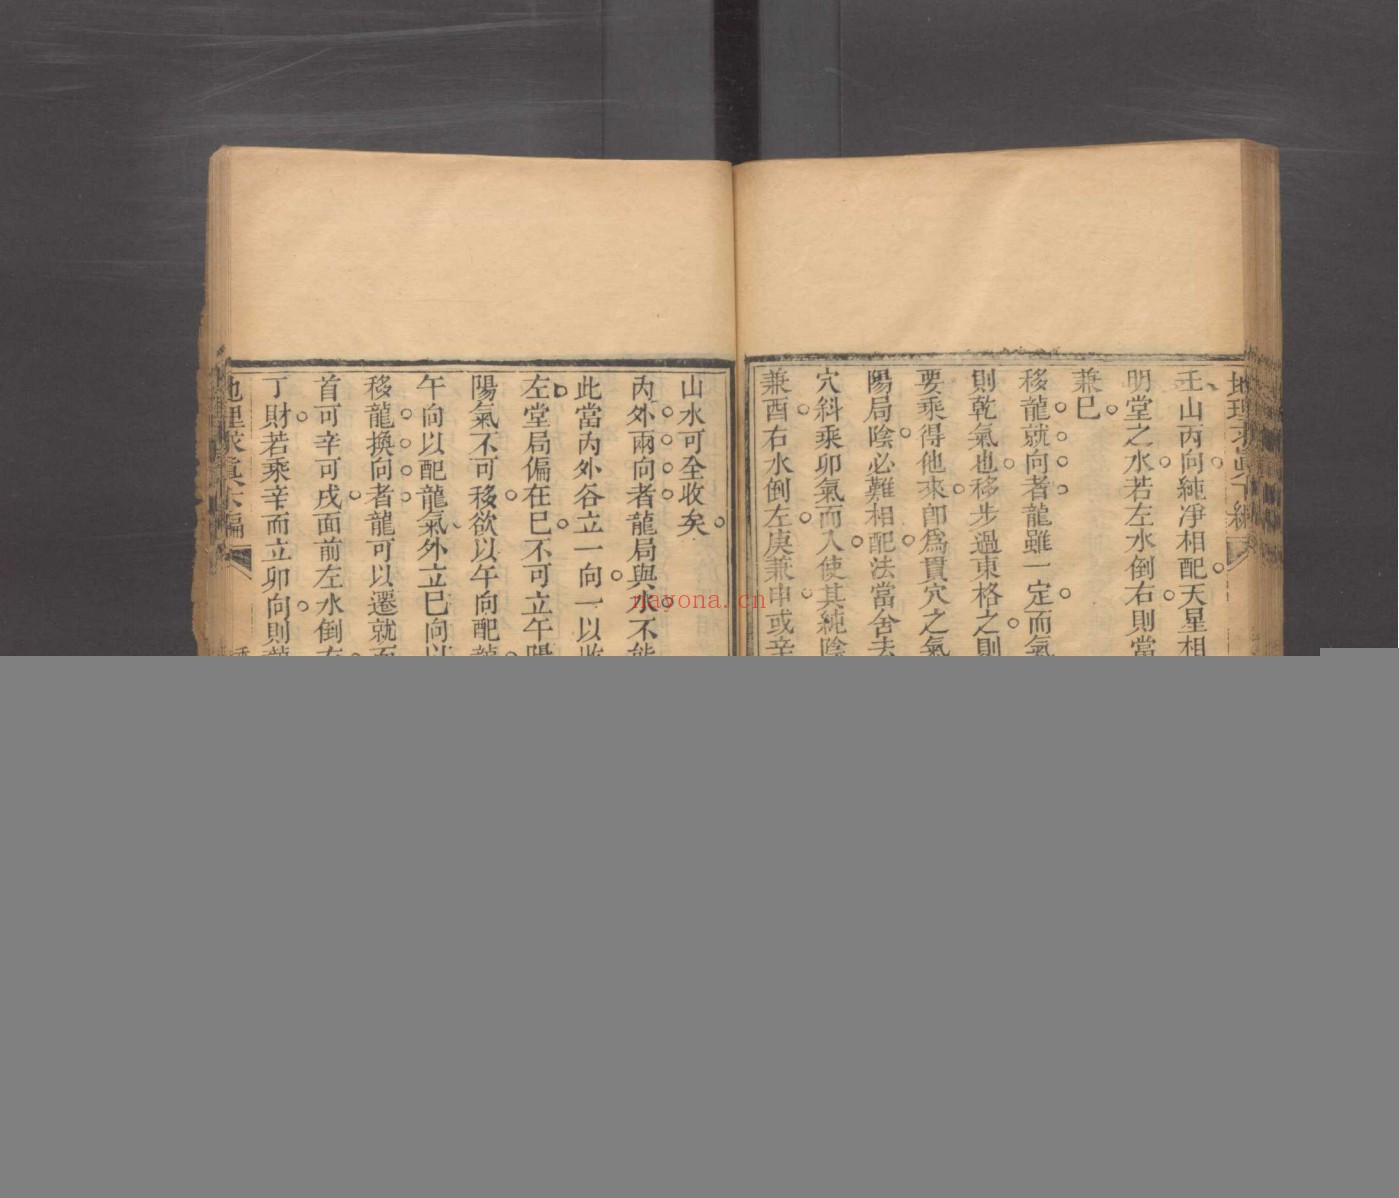 壬山丙向純淨相配天星相
明堂之水若左水倒右則當
兼巳
移龍就向者龍雖一定而氣
則乾氣也移步過東格之則
要乘得他來卽爲貫穴之氣
陽局陰必難相配法當舍去
穴斜乘卯氣而入使其純陰
兼酉右水倒左庚兼申或辛
山水可全收矣
內外兩向者龍局與水不能
此當內外谷立一向一以收
左堂局偏在巳不可立午陽
陽氣不可移欲以午向配龍
午向以配龍氣外立巳向以
移龍換向者龍可以遷就而
首可辛可戌面前左水倒右
丁財若乘辛而立卯向則龍
地理求眞下編
nayona.cn